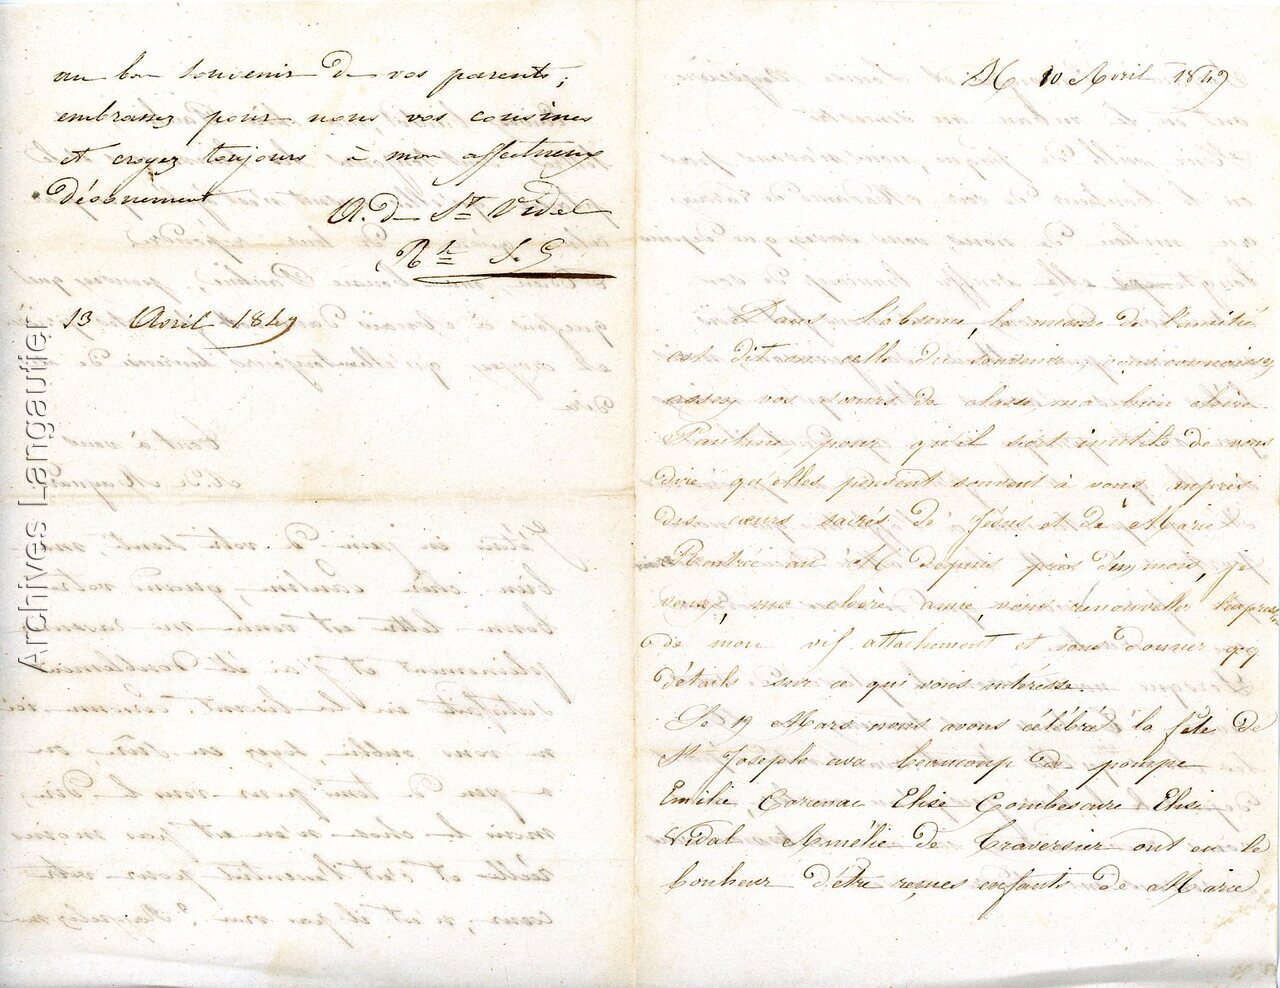 au bon souvenir de vos parents,
embrassez pour nous vos cousines
et croyez toujours à mon affectueux
dévouement
A. de St Vidal
Rse S. C
13 Avril 1849
Archives Langautier
10 Avril 1849
Dans l'absence, la mesure de l'amitié
est dit on celle du souvenir, vous connoissez
assez vos sœurs de classe ma bien chère
Pauline, pour qu'il soit inutile de vous
dire qu'elles pensent souvent à vous auprès
des cœurs sacrés de Jésus et de Marie
Rentrée au depuis près d'un mois, je
veux, ma chère amie vous renouveller l'expression
de mon vif attachement et vous donner qq
détails sur ce qui vous intéresse.
Le 19 Mars nous avons célébré la fête de
St Joseph avec beaucoup de pompe
Emilie Elise Combescure Elise
Vidal Amélie de Traversier ont eu le
bonheur d'être reçues enfants de Marie